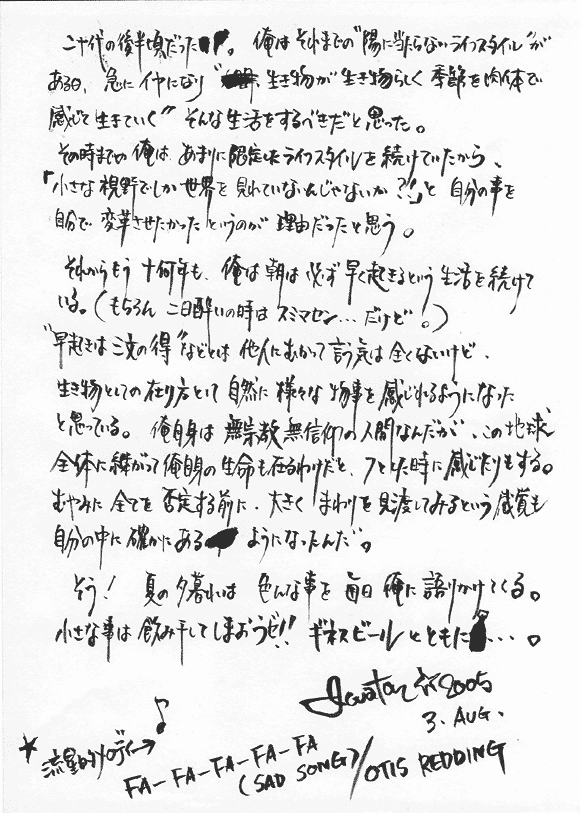 二十代の後半頃だった。俺はそれまでの"陽に当たらないライフスタイル"が
ある日、急にイヤになり"生き物が生き物らしく季節を肉体で
感じて生きていく"そんな生活をするべきだと思った。
その時までの俺はあまりに限定したライフスタイルを続けていたから、
「小さな視野でしか世界を見れていないんじゃないか?!」と自分の事を
自分で変革させたかったというのが理由だったと思う。
それからもう十何年も、俺は朝は必ず早く起きるという生活を続けて
いる。(もちろん二日酔いの時はスミマセン…だけど。)
"早起きは三文の得"などとは他人にむかって言う気は全くないけど、
生き物としての在り方として自然に様々な物事を感じれるようになった
と思っている。俺自身は無宗教無信仰の人間なんだが、この地球
全体に繋がって俺自身の生命も在るわけだと、フとした時に感じたりもする。
むやみに全てを否定する前に、大きくまわりを見渡してみるという感覚も
自分の中に確かにあるようになったんだ。
そう!夏の夕暮れは色んな事を毎日俺に語りかけてくる。
小さな事は飲み干してしまおうゼ!!ギネスビールとともに…。
☆2005
3. AUG.
★流星的メロディー→♪
FA-FA-FA-FA-FA
(SAD SONG)/OTIS REDDING